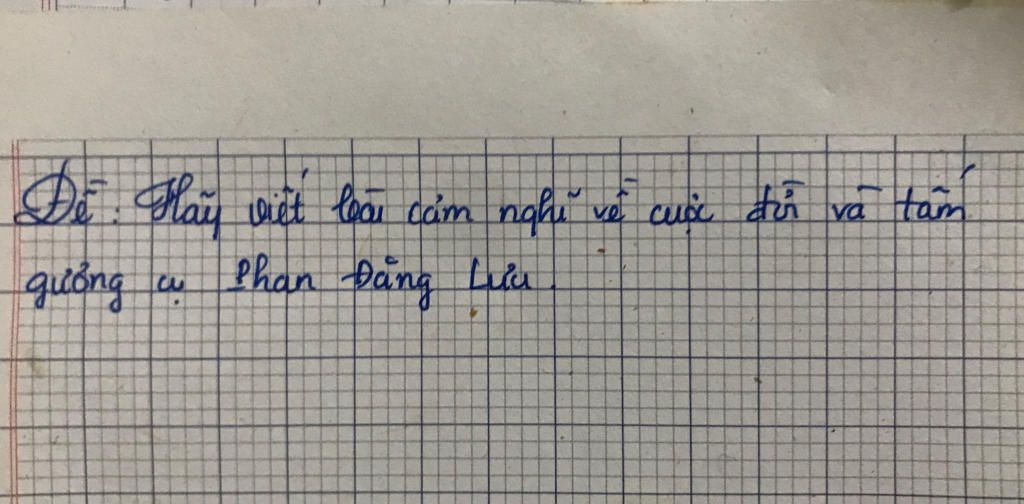 Đề: Hãy viết bài cảm nghĩ về cuộc đời và tấm
gương cụ Phan Đăng Lưu.